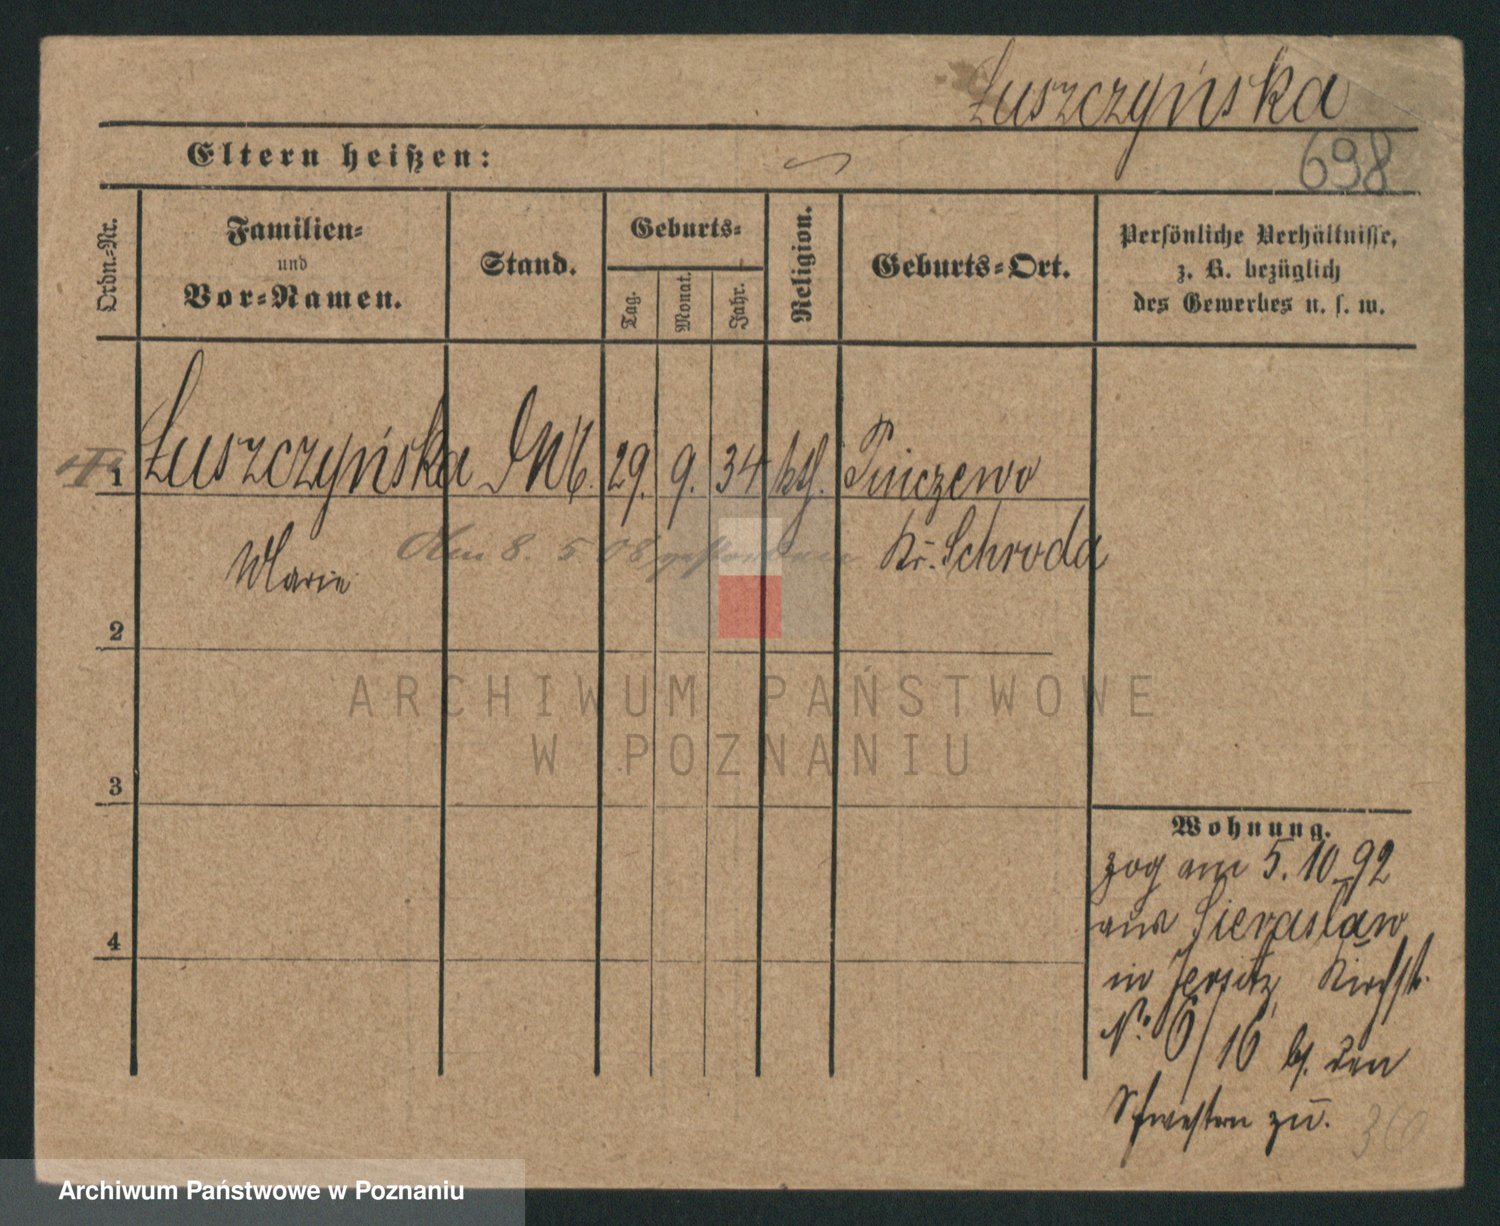 Łuszczyńska
698
Eltern heißen:
Ordn.-Nr.
Familien-
und
Vor-Namen.
Stand.
Geburts-
Tag.
Monat.
Jahr.
Religion.
Geburts-Ort.
Persönliche Verhältnisse,
z. B. bezüglich
des Gewerbes u. s. w.
1 Łuszczyńska 29. 9. 34 kth.
Kr. Schroda
Marie
Am 8. 5. 08 gestorben
2
ARCHIWUM PAŃSTWOWE
W POZNANIU
3
Wohnung.
zog am 5.10.92
aus
in Jersitz, Kirchstr.
No 6/16 b. den
Schwestern zu.
4
360
Archiwum Państwowe w Poznaniu